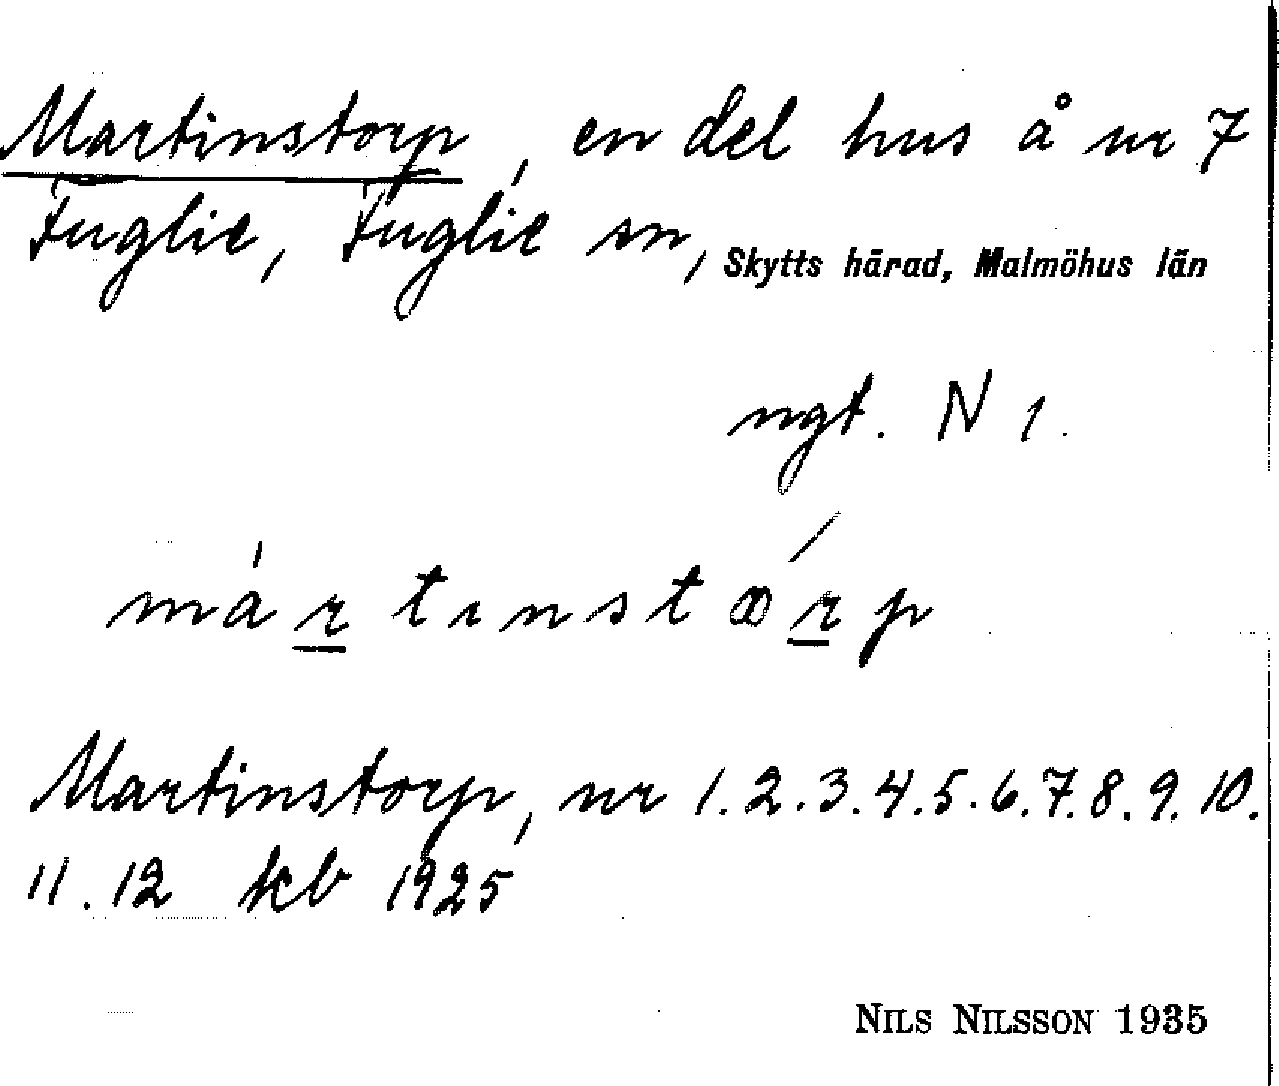 Martinstorp, en del hus å nr 7
Fuglie, Fuglie sn, Skytts härad, Malmöhus län
ngt. N 1.
mártinstǿrp
Martinstorp, nr 1.2.3.4.5.6.7.8.9.10.
11.12 kb 1925
NILS NILSSON 1935